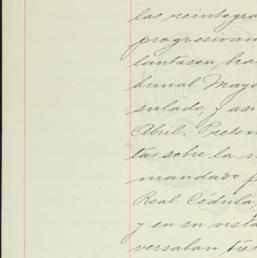 las reintegra
progresivam
lantasen, ha
bunal Mayo
sulado, y asi
Abril. Presen
tas sobre la
mandado p
Real Cédula,
y en su vista
versaban tres